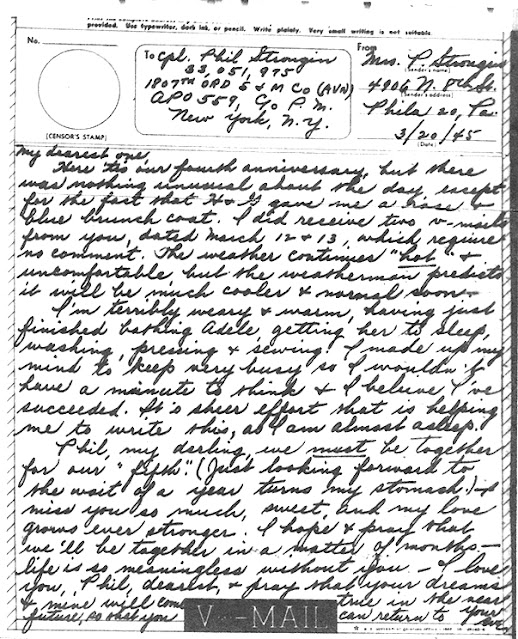 provided. Use typewriter, dark ink, or pencil. Write plainly. Very small writing is not suitable.
No.
(CENSOR'S STAMP)
To Cpl. Phil Strongin
33,051,975
1807TH ORD S & M Co (AVN)
APO 559, C/o P.M.
New York, N.Y.
From
Mrs. P. Strongin
(Sender's name)
4906 N. 8th St.
(Sender's address)
Phila 20, Pa.
3/20/45
(Date)
My dearest one,
Here 'tis our fourth anniversary, but there
was nothing unusual about the day, except
for the fact that H & G gave me a rose &
blue brunch coat. I did receive two v-mails
from you, dated March 12 & 13, which require
no comment. The weather continues "hot" &
uncomfortable but the weatherman predicts
it will be much cooler & normal soon.
I'm terribly weary & warm, having just
finished bathing Adele getting her to sleep,
washing, pressing & sewing. I made up my
mind to keep very busy so I wouldn't
have a minute to think & I believe I've
succeeded. It's sheer effort that is helping
me to write this, as I am almost asleep.
Phil, my darling, we must be together
for our "fifth". (Just looking forward to
the wait of a year turns my stomach.) I
miss you so much, sweet, and my love
grows ever stronger. I hope & pray that
we'll be together in a matter of months—
life is so meaningless without you. — I love
you, Phil, dearest, & pray that your dreams
& mine will come true in the near
future, so that you can return to your
V···-MAIL